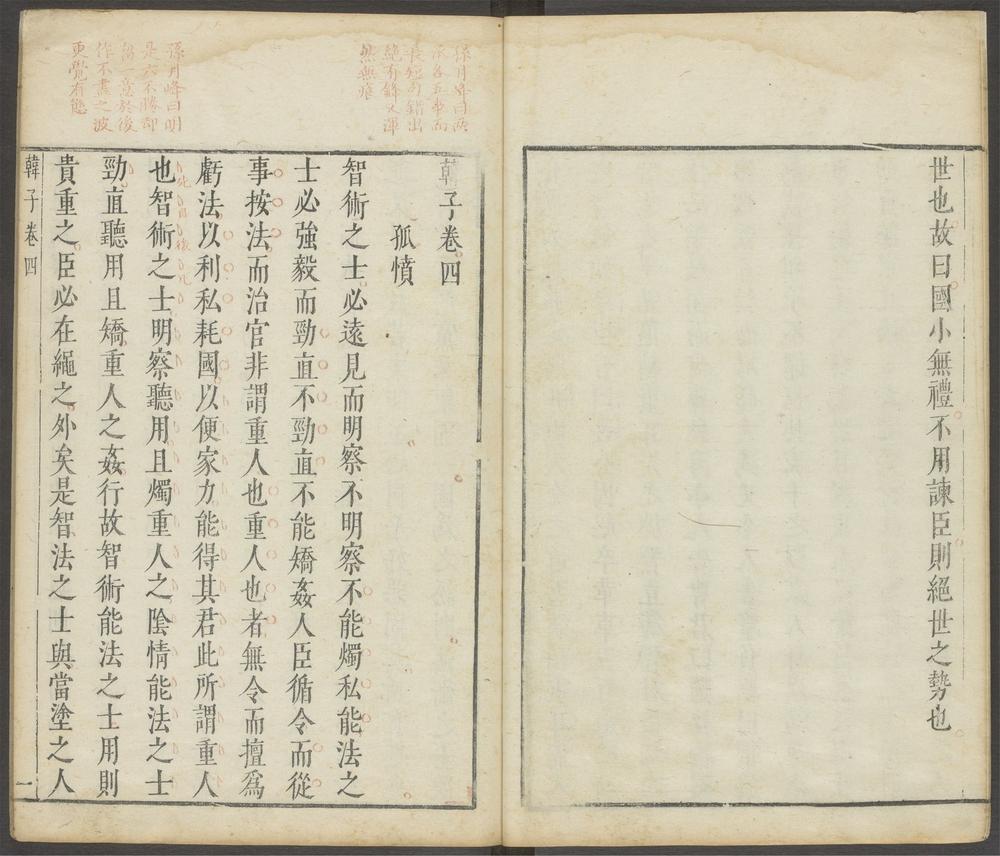 世也故曰國小無禮不用諫臣則絕世之勢也
孫月峰曰兩
長短而錯出
絕有鋒又渾
然無痕
孫月峰曰明
是六不勝却
留一意於後
作不盡之波
更覺有態
韓子卷四
孤憤
智術之士必遠見而明察不明察不能燭私能法之
士必強毅而勁直不勁直不能矯姦人臣循令而從
事按法而治官非謂重人也重人也者無令而擅爲
虧法以利私耗國以便家力能得其君此所謂重人
也智術之士明察聽用且燭重人之陰情能法之士
勁直聽用且矯重人之姦行故智術能法之士用則
貴重之臣必在繩之外矣是智法之士與當塗之人
韓子卷四
一